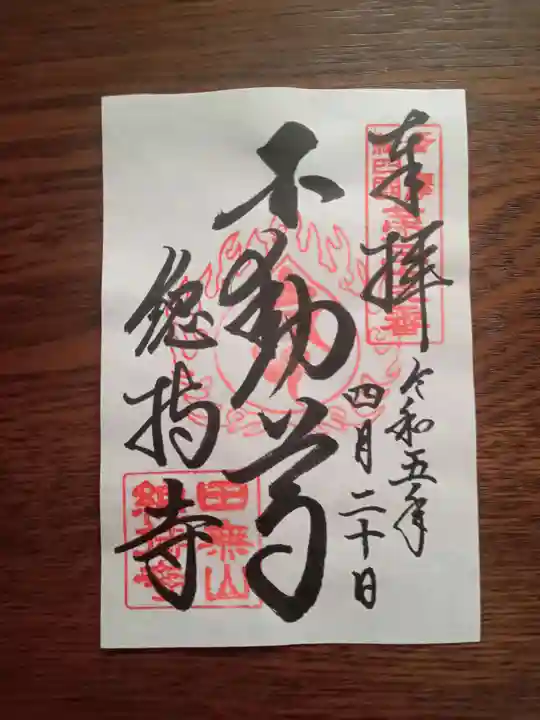 奉拝
令和五年
四月二十日
不動尊
總持寺
田無山
總持寺